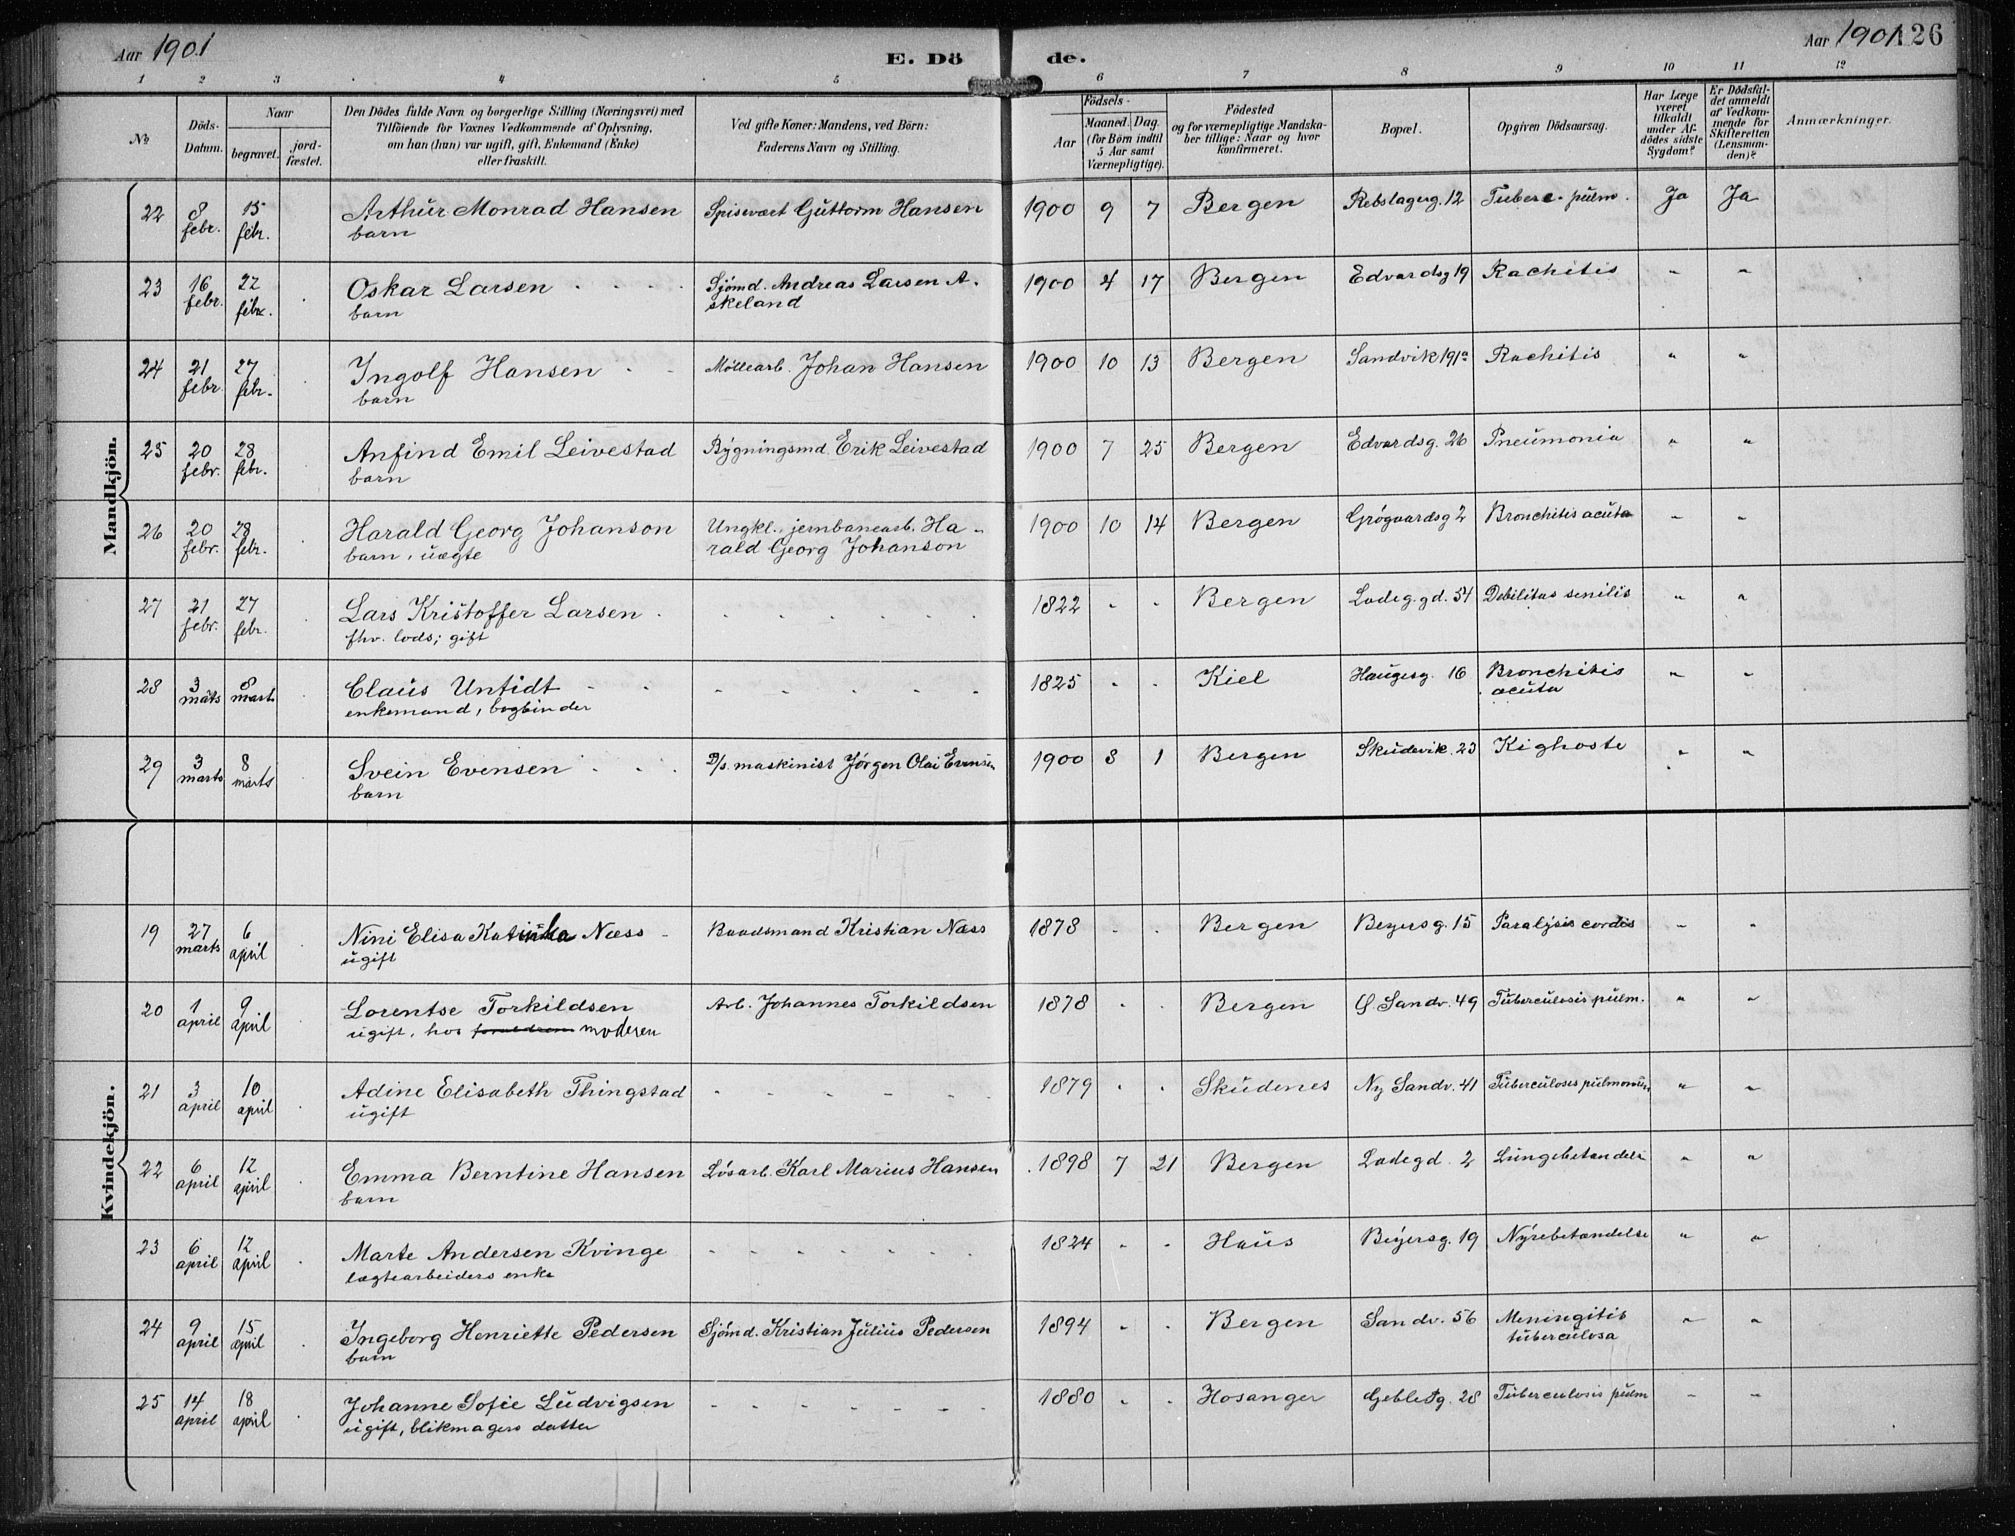 Aar 1901
E. Dö
de.
Aar 1901
126
1 2 3 4 5 6 7 8 9 10 11 12
No
Döds-Datum.
Naar
begravet.
jord-fæstet.
Den Dödes fulde Navn og borgerlige Stilling (Næringsvei) med
Tilföiende for Voxnes Vedkommende af Oplysning,
om han (hun) var ugift, gift, Enkemand (Enke)
eller fraskilt.
Ved gifte Koner: Mandens, ved Börn:
Faderens Navn og Stilling.
Födsels-
Aar
Maaned. Dag.
(for Börn indtil
5 Aar samt
Værnepligtige).
Födested
og for værnepligtige Mandska-
ber tillige: Naar og hvor
konfirmeret.
Bopæl.
Opgiven Dödsaarsag.
Har Læge
været
tilkaldt
under Af-
dödes sidste
Sygdom?
Er Dödsfal-
det anmeldt
af Vedkom-
mende for
Skifteretten
(Lensman-
den)?
Anmærkninger.
Mandkjön.
22 8 febr. 15 febr. Arthur Monrad Hansen Spisevært Guttorm Hansen 1900 9 7 Bergen Rebslagerg. 12 Tuberc. pulm. Ja Ja
barn
23 16 febr. 22 febr. Oskar Larsen Sjømd. Andreas Larsen A- 1900 4 17 Bergen Edvardsg 19 Rachitis " "
barn skeland
24 21 febr. 27 febr. Ingolf Hansen Møllearb. Johan Hansen 1900 10 13 Bergen Sandvik 191a Rachitis " "
barn
25 20 febr. 28 febr. Anfind Emil Leivestad Bygningsmd. Erik Leivestad 1900 7 25 Bergen Edvardsg. 26 Pneumonia " "
barn
26 20 febr. 28 febr. Harald Georg Johanson Ungkl. jernbanearb. Ha- 1900 10 14 Bergen Grøgaardsg 2 Bronchitis acuta " "
barn, uægte rald Georg Johanson
27 21 febr. 27 febr. Lars Kristoffer Larsen 1822 Bergen Ladeg.gd. 54 Debilitas senilis " "
fhv. lods; gift
28 3 marts 8 marts Claus Untidt 1825 Kiel Haugesg. 16 Bronchitis " "
enkemand, bogbinder acuta
29 3 marts 8 marts Svein Evensen D/s. maskinist Jørgen Olai Evensen 1900 8 1 Bergen Skudevik. 23 Kighoste " "
barn
Kvindekjön.
19 27 marts 6 april Nini Elisa Katinka Næss Baadsmand Kristian Næss 1878 Bergen Beyersg. 15 Paralysis cordis " "
ugift
20 1 april 9 april Lorentse Torkildsen Arb. Johannes Torkildsen 1878 Bergen Sandv. 49 Tuberculosis pulm. " "
ugift, hos forældrene moderen
21 3 april 10 april Adine Elisabeth Thingstad 1879 Skudenes Ny Sandv. 41 Tuberculosis pulmonum " "
ugift
22 6 april 12 april Emma Berntine Hansen Løsarb. Karl Marius Hansen 1898 7 21 Bergen Ladegd. 2 Lungebetændelse " "
barn
23 6 april 12 april Marte Andersen Kvinge 1824 Haus Beyersg. 19 Nyrebetændelse " "
lægtearbeiders enke
24 9 april 15 april Ingeborg Henriette Pedersen Sjømd. Kristian Julius Pedersen 1894 Bergen Sandv. 56 Meningitis " "
barn tuberculosa
25 14 april 18 april Johanne Sofie Ludvigsen 1880 Hosanger Geblesg. 28 Tuberculosis pulm " "
ugift, blikmagers datter